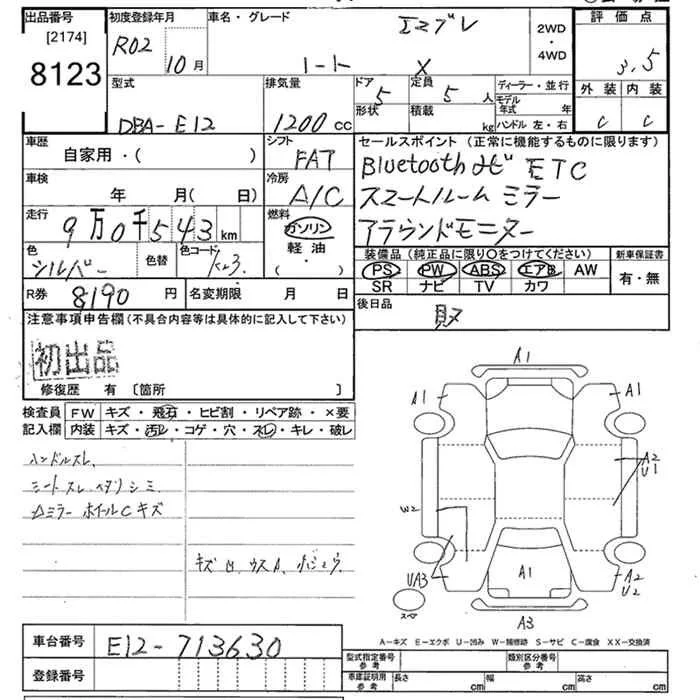 出品番号
[2174]
8123
初度登録年月
R02 10月
車名・グレード
エスプレ
ノート X
2WD
・
4WD
評価点
3.5
外装 内装
C C
型式
DBA-E12
排気量
1200 cc
ドア 5
形状
定員 5 人
積載 kg
ディーラー・並行
モデル年式 年
ハンドル 左・右
車歴
自家用・( )
シフト
FAT
車検
年 月( 日)
冷房
A/C
走行
9万0千543 km
燃料
ガソリン
軽・油
・( )
色
シルバー
色替
色コード
K23
R券 8190 円
名変期限 月 日
セールスポイント (正常に機能するものに限ります)
Bluetoothナビ ETC
スマートルームミラー
アラウンドモニター
装備品 (純正品に限り○をつけてください)
PS PW ABS エアB AW
SR ナビ TV カワ
新車保証書
有・無
後日品
取
注意事項申告欄 (不具合内容等は具体的に記入して下さい)
初出品
修復歴 有 〔箇所 〕
検査員 FW キズ・飛石・ヒビ割・リペア跡・×要
記入欄 内装 キズ・汚レ・コゲ・穴・スレ・キレ・破レ
ハンドルスレ、
シートスレ ヘタリ シミ
△ミラー ホイールC キズ
キズ 凹、ウスA、
A1
A1
A1
A2
U1
W2
UA3
A1
A2
U2
スペア
A3
A-キズ E-エクボ U-凹み W-補修跡 S-サビ C-腐食 XX-交換済
車台番号 E12-713630
登録番号
型式指定番号 参考
類別区分番号 参考
車庫証明用 参考
長さ cm 幅 cm 高さ cm